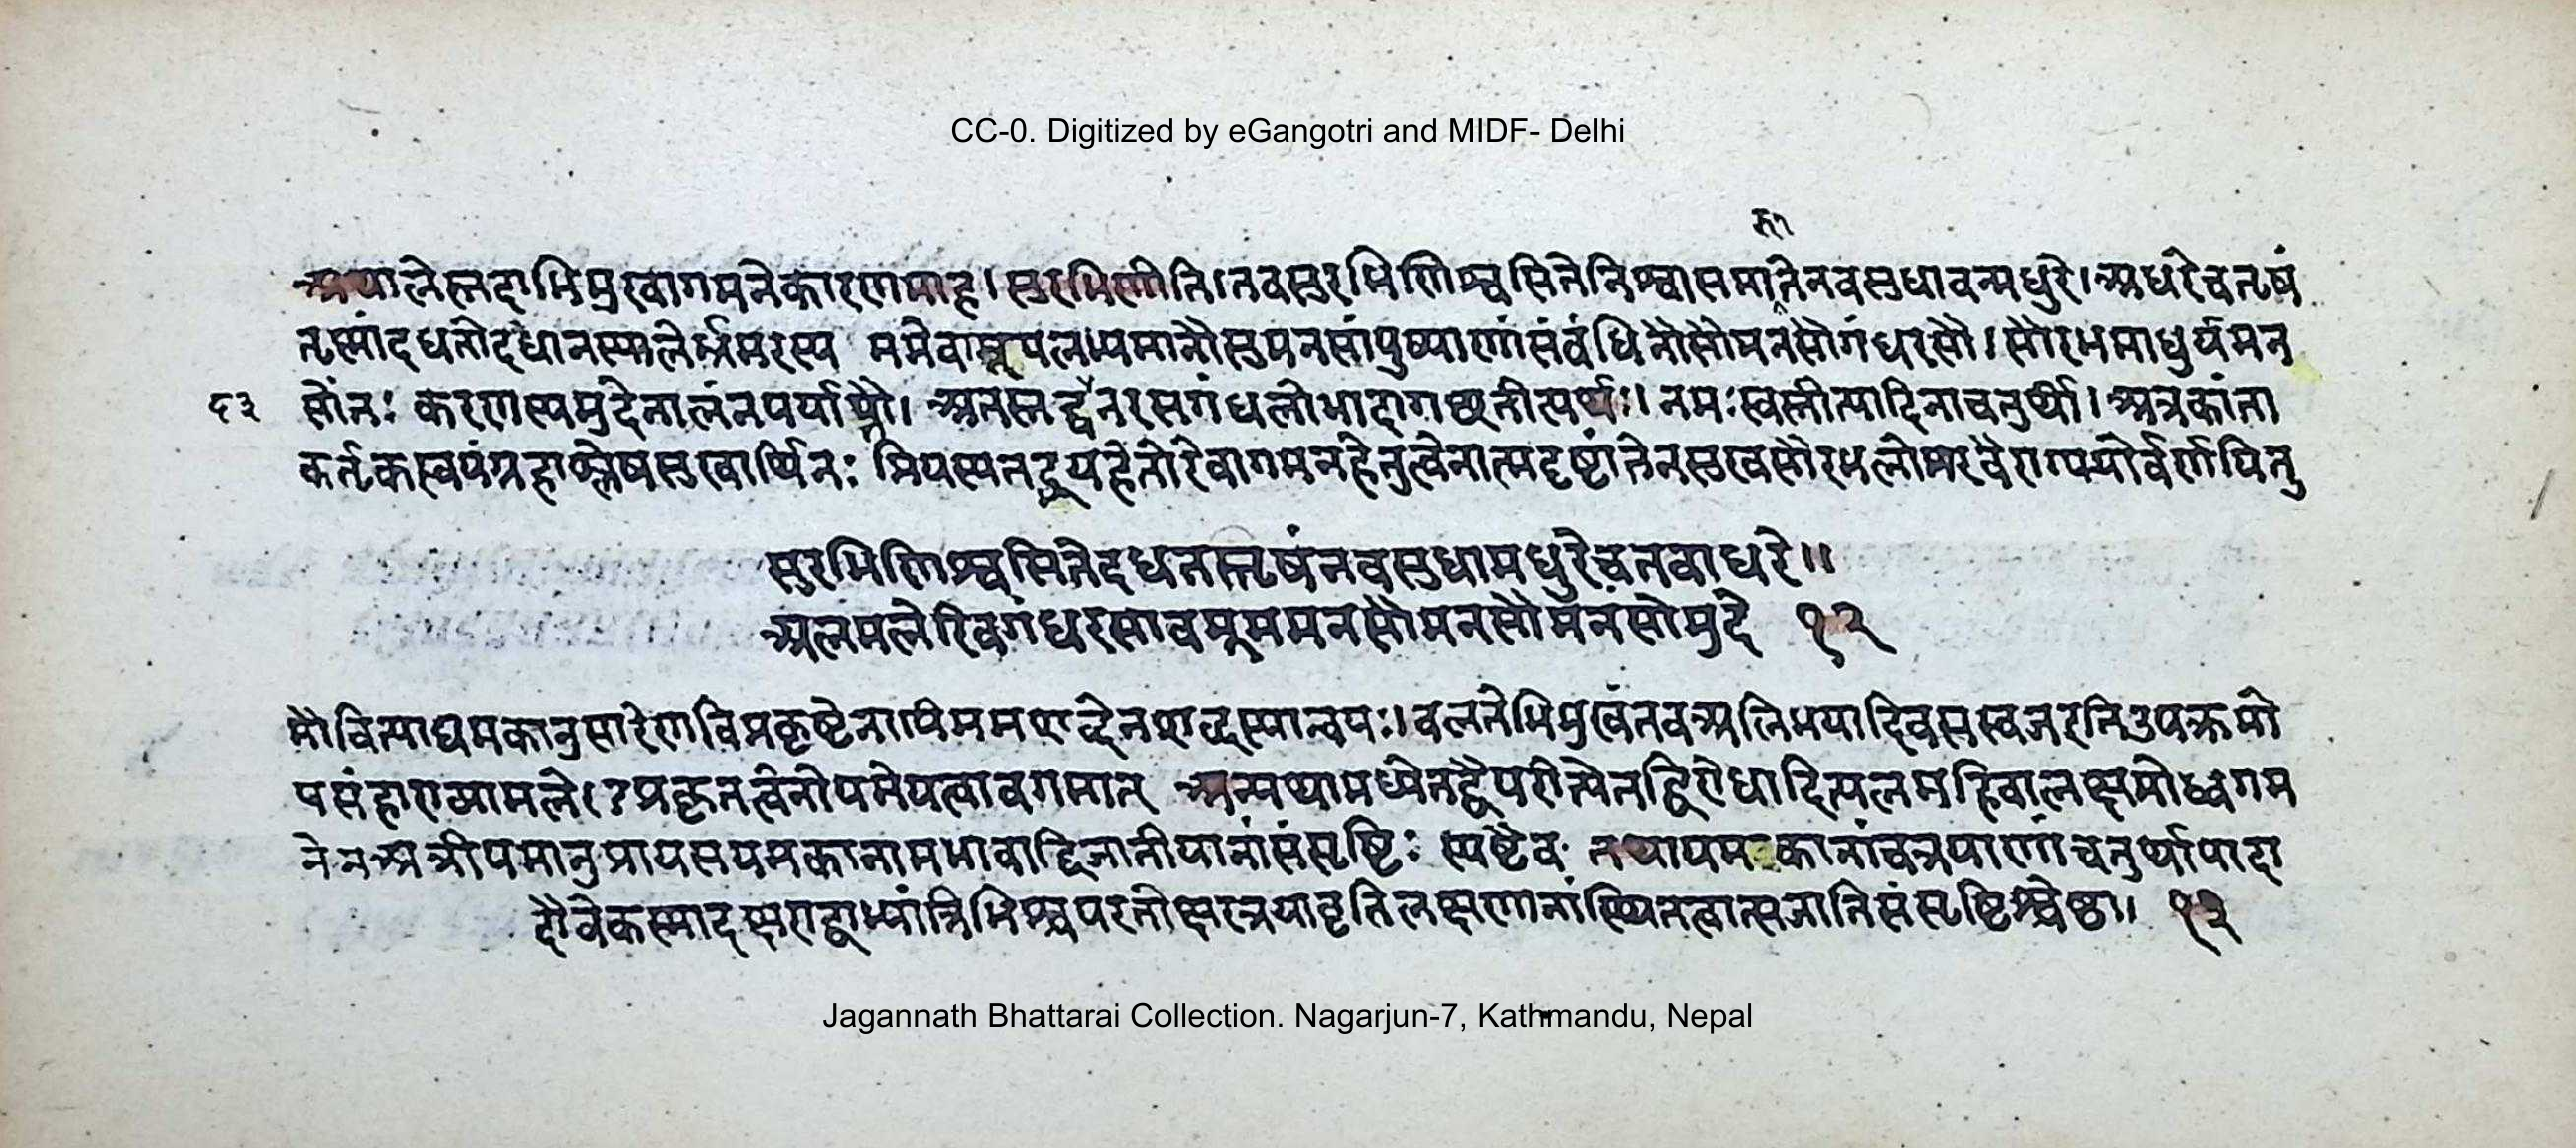 CC-0. Digitized by eGangotri and MIDF- Delhi
ता
अथालेस्तदाभिमुखागमनेकारणमाह।सुरभिणीति।तवसुरभिणिश्वसितेनिश्वासमातेनवसुधावन्मधुरे।अधरेचतृषं
तृस्मांदधतोदधानस्यालेर्भ्रमरस्य ममेवामूनुपलभ्यमानौसुमनसांपुष्पाणांसंवंधिनौसौमनसौगंधरसौ।सौरभमाधुर्यमन
६३ सोंतः करणस्यमुदेनालंनपर्याप्तौ। अतस्तद्वन्नरसगंधलोभादागछतीत्यर्थः।। नमःस्वस्तीत्यादिनाचतुर्थी। अत्रकांता
कर्तृकस्वयंग्रहाश्लेषसुखार्थिनः प्रियस्यतद्रूपहेतोरेवागमनहेतुत्वेनात्मदृष्टांतेनसुखसौरभलोभरवैराग्ययोर्वर्णयितु
सुरभिणिश्वसितेदधतस्तृषंनवसुधामधुरेचतवाधरे॥
अलमलेरिवगंधरसावमूममनसौमनसौमनसोमुदे १२
मौवित्याद्यमकानुसारेणविप्रकृष्टेनापिममशब्देनशब्दस्यान्वयः।। वलनेभिमुखंतवअलिभयादिवसस्वजरतिउपक्रमो
पसंहाराभ्यामले(?प्रकृतत्वेनोपमेयत्वावगमात् अन्यथामध्येतद्वैपरीत्येतद्विरोधादित्यलमहिवालक्षमोध्वगम
ने नअत्रीपमानुप्रायसयमकानामभावाद्विजातीयानांसंसृष्टिः स्पष्टैव तथायमकानांचत्रयाणांचतुर्थपादा
दौवेकस्मादक्षराद्वाभ्यांत्रिभिश्चपरतोक्षरत्रयावृत्तिलक्षणानांस्थितत्वात्सजातिसंसृष्टिश्चेष्ठा। १२
Jagannath Bhattarai Collection. Nagarjun-7, Kathmandu, Nepal